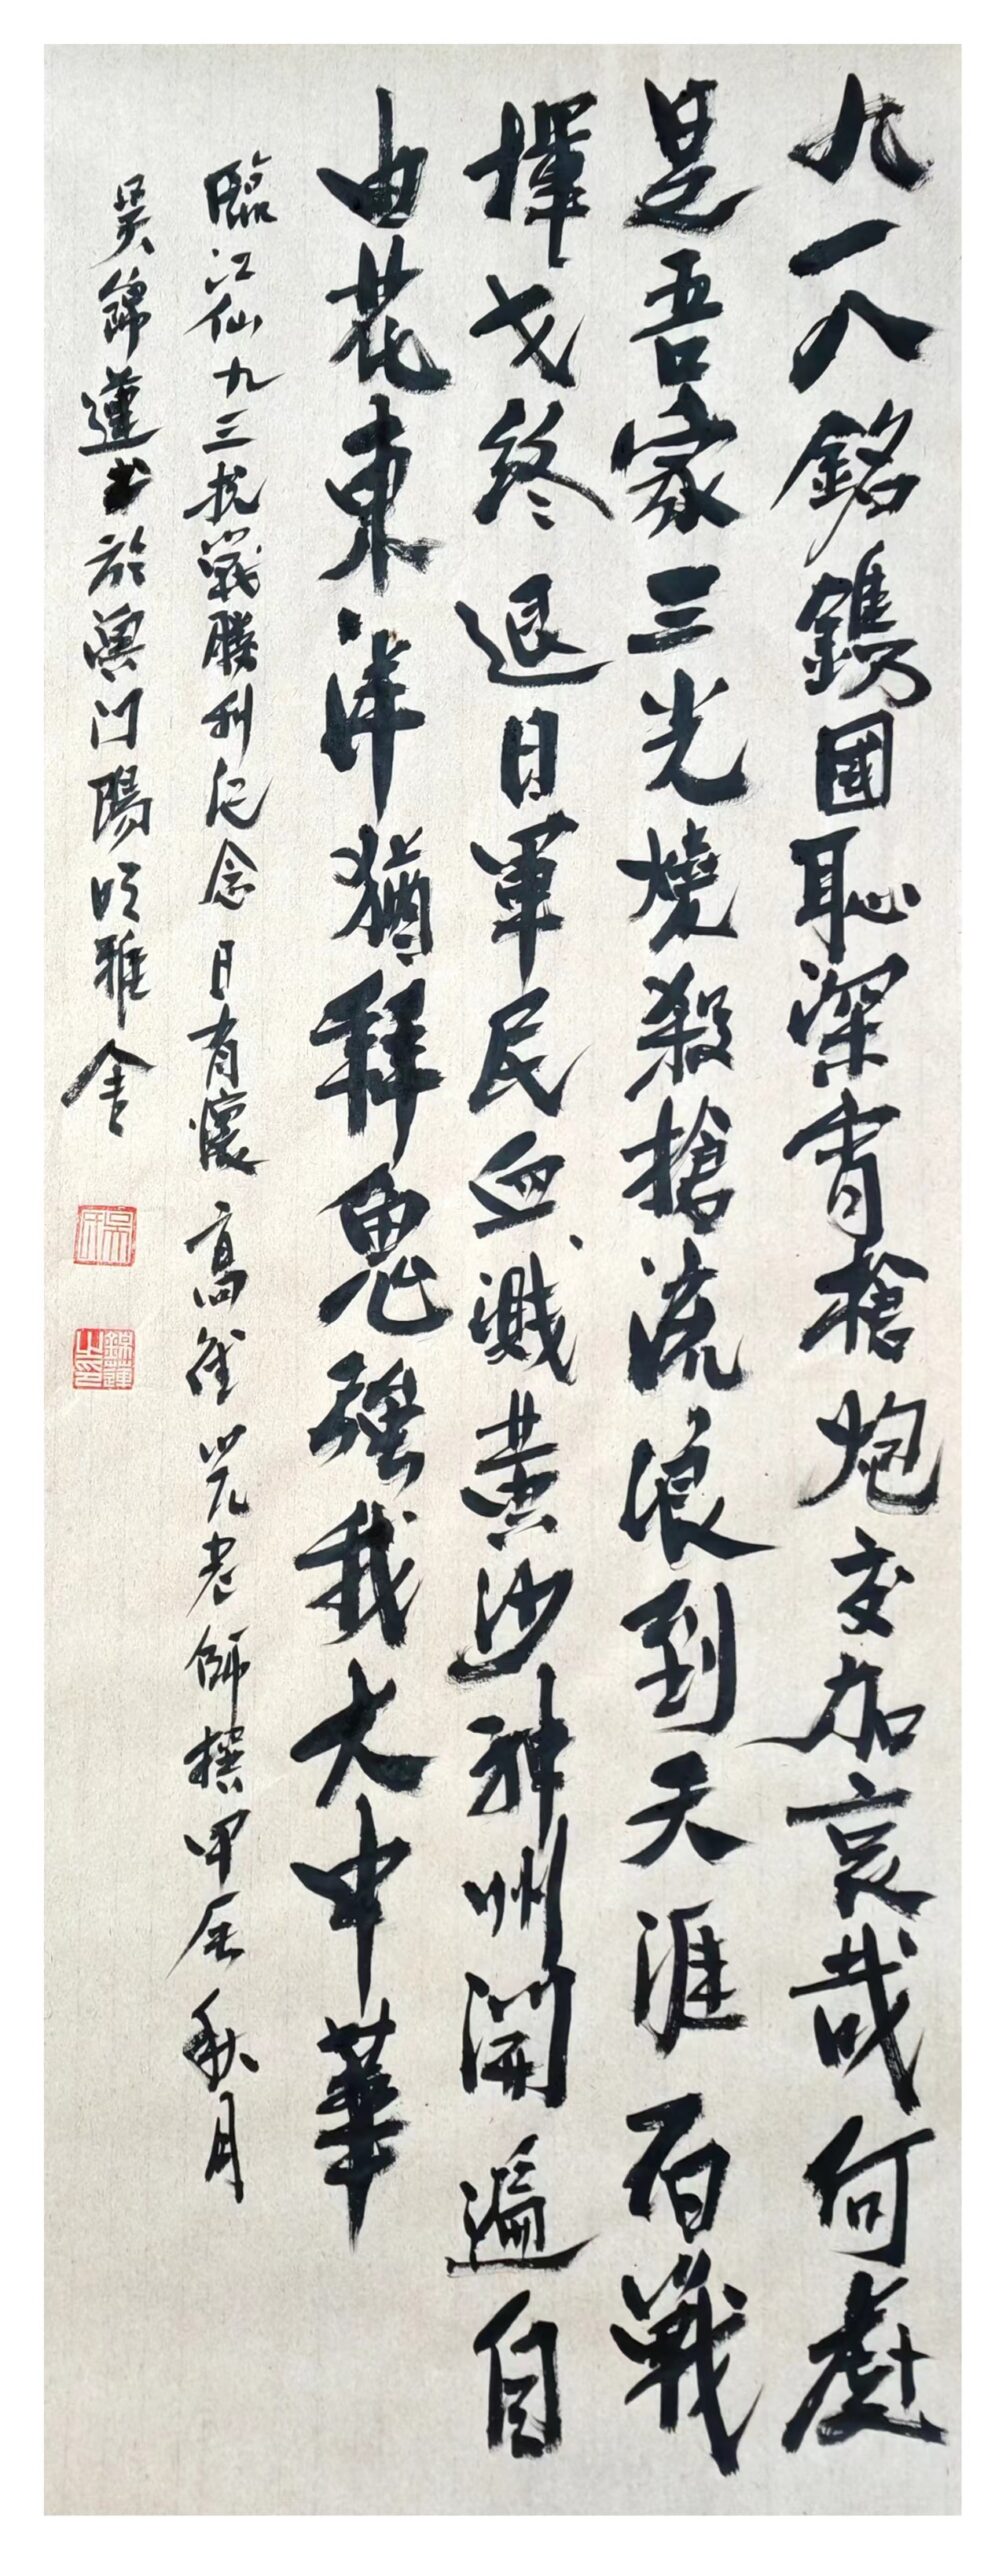 九一八銘鐫國恥深宵槍炮交加哀哉何處
是吾家三光燒殺搶流浪到天涯百戰
揮戈終退日軍民血濺黃沙神州開遍自
由花東洋猶拜鬼強我大中華
臨江仙九三抗戰勝利紀念日有懷 高老師撰甲辰秋月
吳錦蓮書於澳門陽明雅舍
錦蓮之印